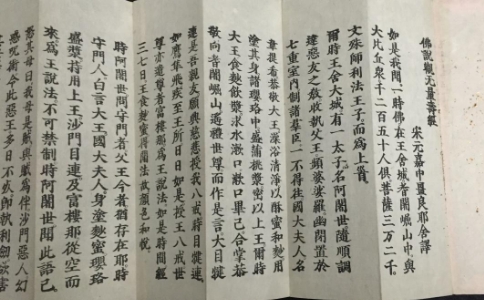 佛說觀无量壽經
宋元嘉中畺良耶舍譯
如是我聞一時佛在王舍城耆闍崛山中與
大比丘衆千二百五十人俱菩薩三万二千
文殊師利法王子而為上首
爾時王舍大城有一太子名阿闍世隨順調
達惡友之敎收執父王頻婆娑羅幽閉置於
七重室內制諸羣臣一不得往國大夫人名
韋提希恭敬大王澡浴清淨以酥蜜和麨用
塗其身諸瓔珞中盛蒲桃漿密以上王爾時
大王食麨飲漿求水漱口漱口畢已合掌恭
敬向耆闍崛山遙禮世尊而作是言大目犍
連是吾親友願興慈悲授我八戒時目犍連
如鷹隼飛疾至王所日日如是授王八戒世
尊亦遣尊者富樓那為王說法如是時間經
三七日王食麨蜜得聞法故顏色和悅
時阿闍世問守門者父王今者猶存在耶時
守門人白言大王國大夫人身塗麨蜜瓔珞
盛漿持用上王沙門目連及富樓那從空而
來為王說法不可禁制時阿闍世聞此語已
怒其母曰我母是賊與賊為伴沙門惡人幻
惑呪術令此惡王多日不死即執利劍欲害